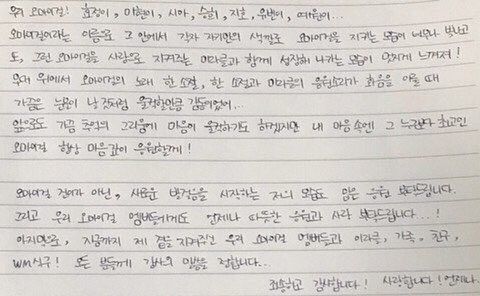 우리 오마이걸! 효정이, 미현이, 시아, 승희, 지호, 유빈이, 아린이...
오마이걸이라는 이름으로 그 안에서 각자 자기만의 색깔로 오마이걸을 지키는 모습이 너무나 빛나고
또, 그런 오마이걸을 사랑으로 지켜주는 미라클과 함께 성장해 나가는 모습이 멋지게 느껴져!
무대 위에서 오마이걸의 노래 한 소절, 한 소절과 미라클의 응원소리가 화음을 이룰 때
가끔은 눈물이 날 것처럼 울컥할만큼 감동이었어...
앞으로도 가끔 추억의 그리움에 마음이 울컥하기도 하겠지만 내 마음속엔 그 누구보다 최고인
오마이걸 항상 마음 깊이 응원할게!
오마이걸 진이가 아닌, 새로운 발걸음을 시작하는 저의 모습도 많은 응원 부탁드립니다.
그리고 우리 오마이걸 멤버들에게도 언제나 따뜻한 응원과 사랑 부탁드립니다...!
마지막으로, 지금까지 제 곁을 지켜주신 우리 오마이걸 멤버들과 미라클, 가족, 친구,
WM식구! 모든 분들께 감사의 말씀을 전합니다...
죄송하고 감사합니다! 사랑합니다! 언제나.